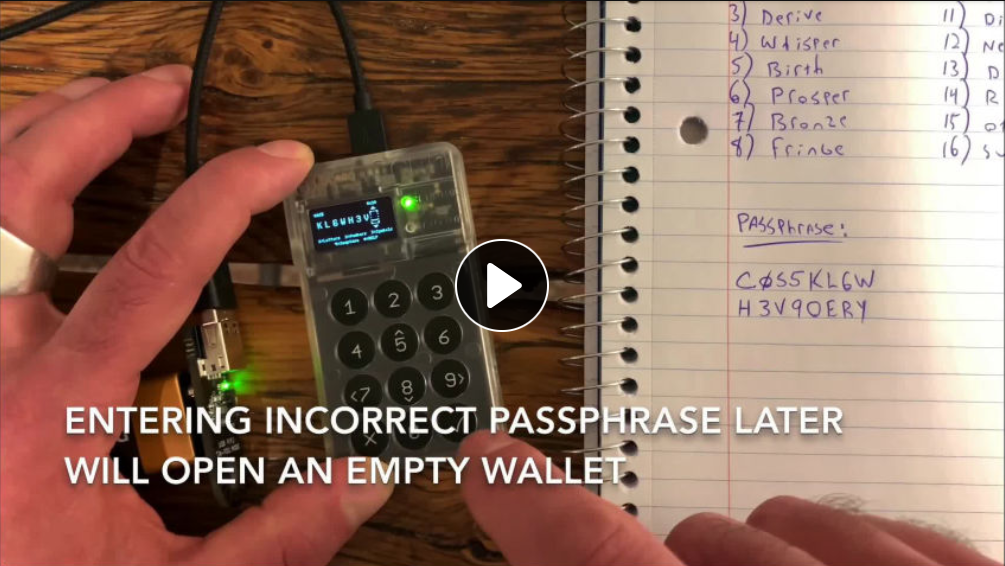 3) Derive
4) Whisper
5) Birth
6) Prosper
7) Bronze
8) Fringe
11) Di
12) Ne
13) D
14) R
15) of
16) Su
PASSphrase:
CØS5KL6W
H3V9OERY
KL6WH3V
1 2 3
4 5 6
<7 8 9>
X
ENTERING INCORRECT PASSPHRASE LATER
WILL OPEN AN EMPTY WALLET